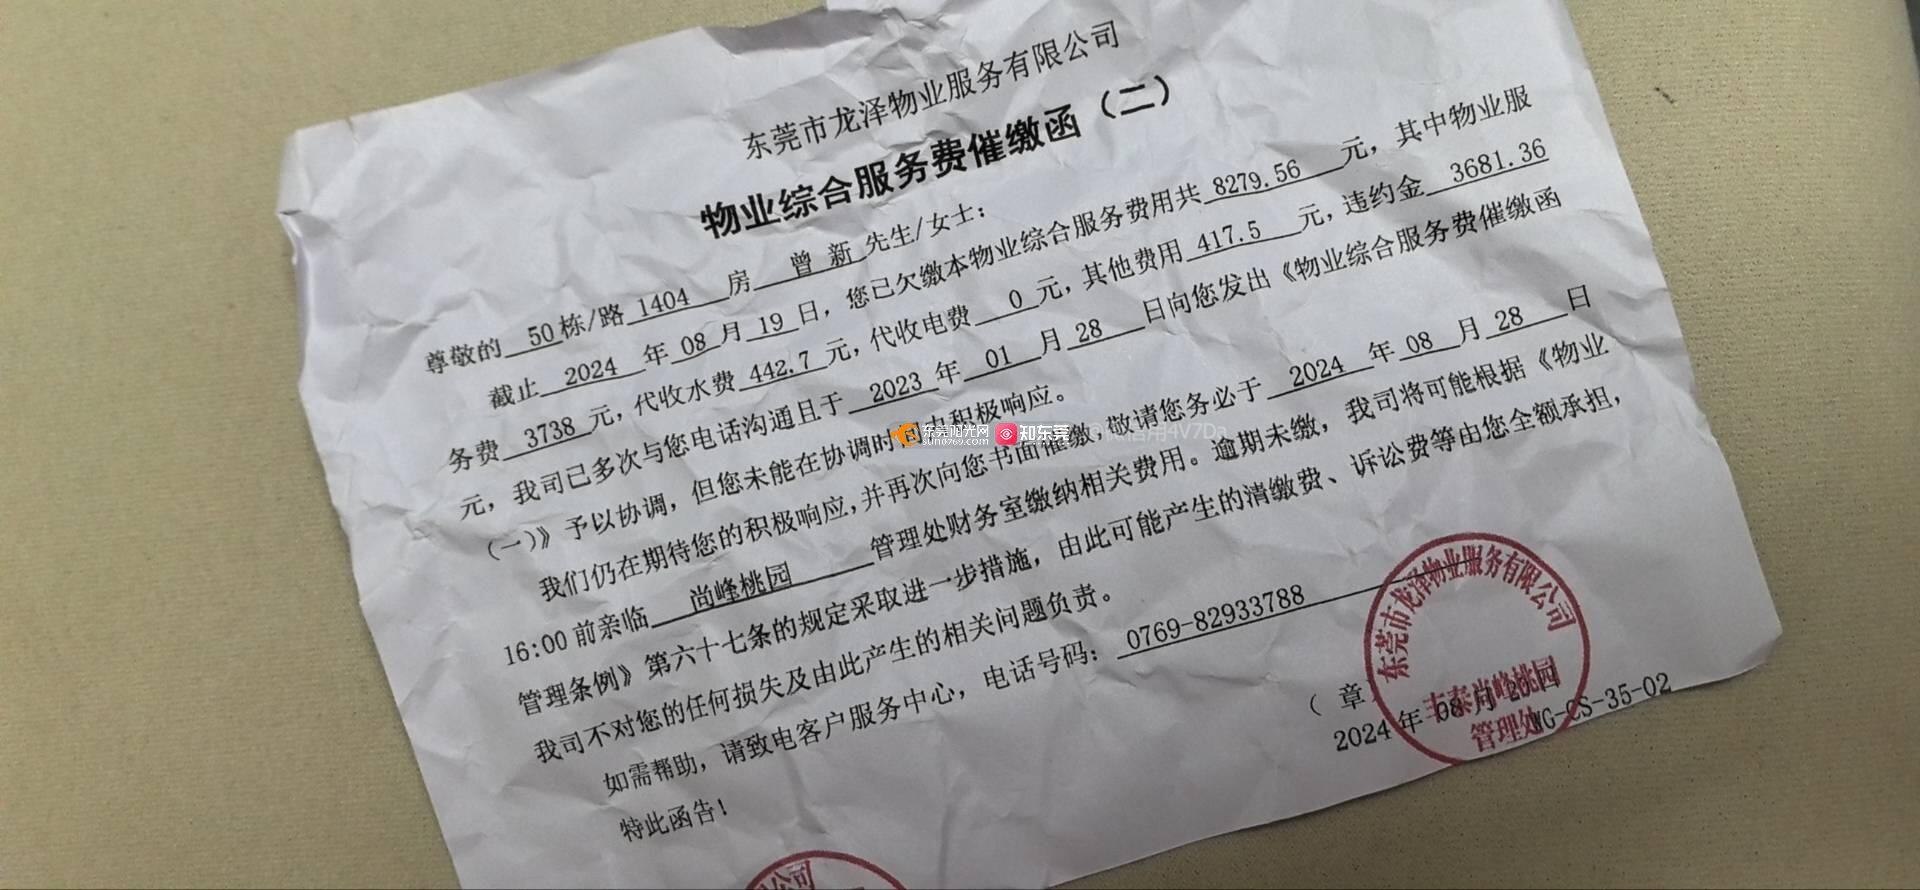 东莞市龙泽物业服务有限公司
物业综合服务费催缴函（二）
尊敬的 50 栋/路 1404 房 曾 新 先生/女士：
截止 2024 年 08 月 19 日，您已欠缴本物业综合服务费用共 8279.56 元，其中物业服
务费 3738 元，代收水费 442.7 元，代收电费 0 元，其他费用 417.5 元，违约金 3681.36
元，我司已多次与您电话沟通且于 2023 年 01 月 28 日向您发出《物业综合服务费催缴函
（一）》予以协调，但您未能在协调时 积极响应。
我们仍在期待您的积极响应，并再次向您书面催缴，敬请您务必于 2024 年 08 月 28 日
16:00 前亲临 尚峰桃园 管理处财务室缴纳相关费用。逾期未缴，我司将可能根据《物业
管理条例》第六十七条的规定采取进一步措施，由此可能产生的清缴费、诉讼费等由您全额承担，
我司不对您的任何损失及由此产生的相关问题负责。
如需帮助，请致电客户服务中心，电话号码： 0769-82933788
特此函告！
（ 章
2024 年 08 月 日
WG-CS-35-02
东莞市龙泽物业服务有限公司
丰泰尚峰桃园
管理处
东莞阳光网
sun0769.com
知东莞
@微信用4V7Da